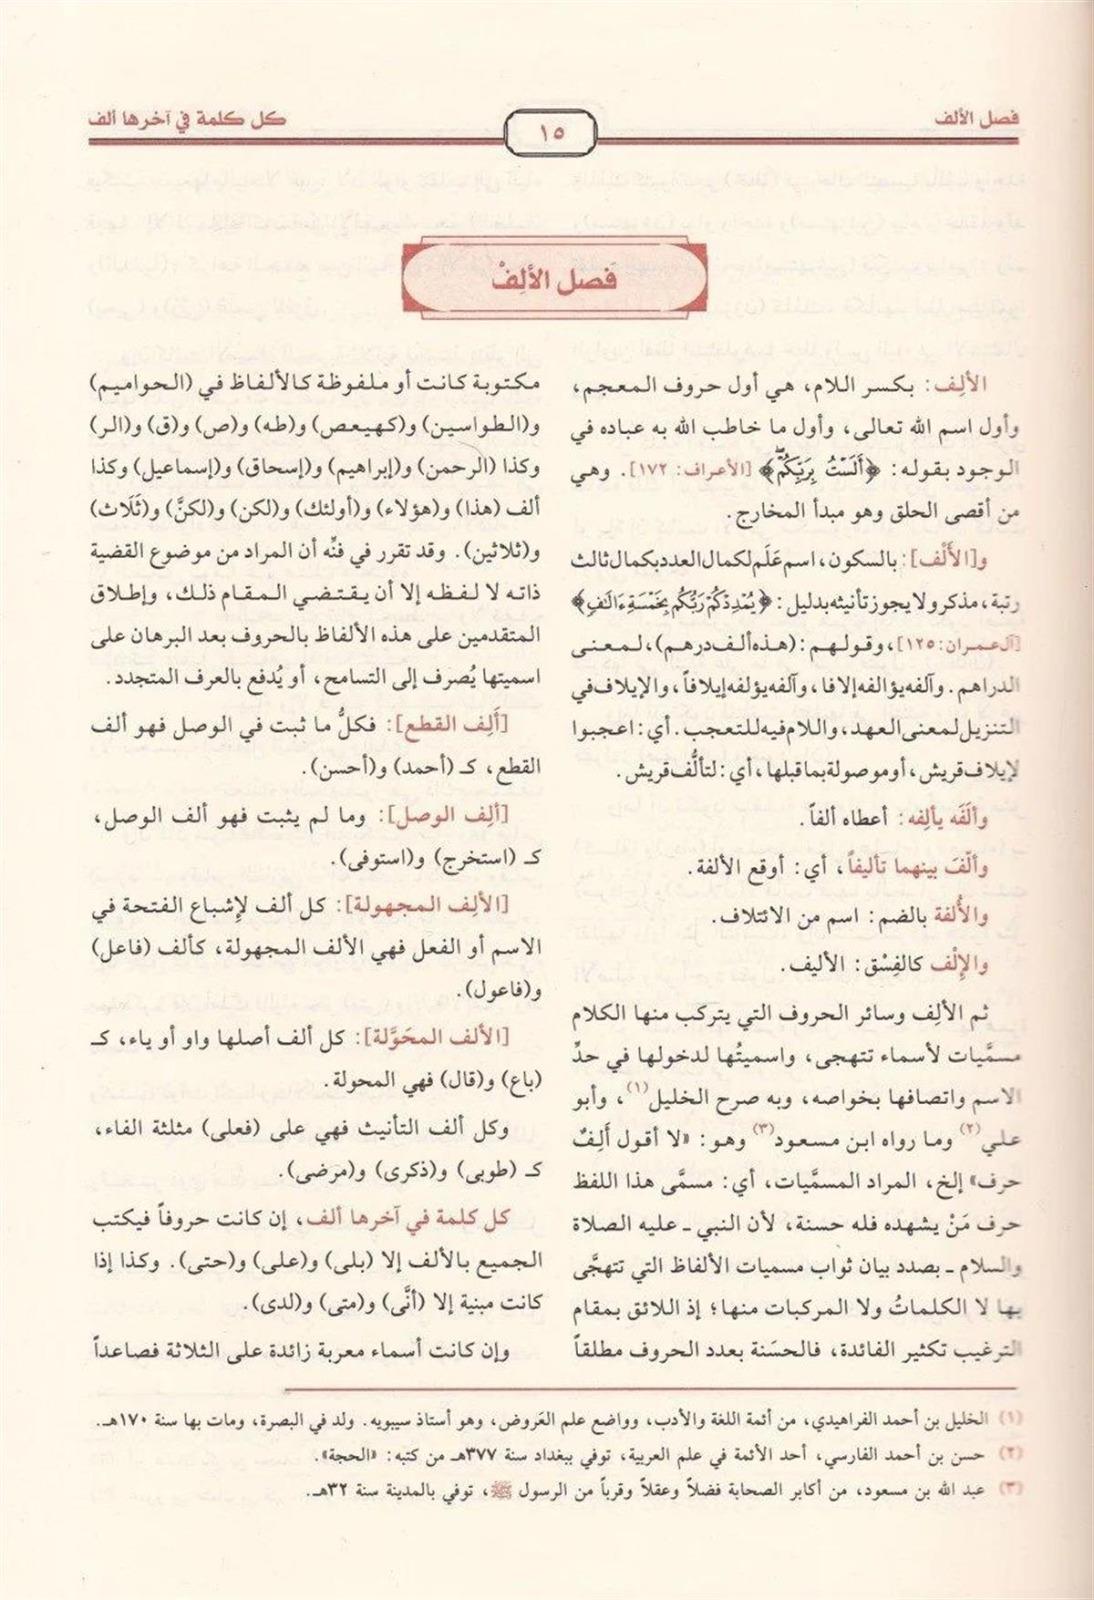 فصل الألف
١٥
كل كلمة في آخرها ألف
فَصل الألِفْ
الألِف: بكسر اللام، هي أول حروف المعجم،
وأول اسم الله تعالى، وأول ما خاطب الله به عباده في
الوجود بقوله: ﴿أَلَسْتُ بِرَبِّكُمْ﴾ [الأعراف: ١٧٢]. وهي
من أقصى الحلق وهو مبدأ المخارج.
و[الأَلْف]: بالسكون، اسم عَلَم لكمال العدد بكمال ثالث
رتبة، مذكر ولا يجوز تأنيثه بدليل: ﴿يُمْدِدْكُمْ رَبُّكُم بِخَمْسَةِ ءَالَٰفٍ﴾
[آل عمران: ١٢٥]، وقولهم: (هذه ألف درهم)، لمعنى
الدراهم. وآلفه يؤالفه إلافا، وآلفه يؤلفه إيلافاً، والإيلاف في
التنزيل لمعنى العهد، واللام فيه للتعجب. أي: اعجبوا
لإيلاف قريش، أو موصولة بما قبلها، أي: لتألُّف قريش.
وألَفَه يألِفه: أعطاه ألفاً.
وألّفَ بينهما تأليفاً، أي: أوقع الألفة.
والأُلفة بالضم: اسم من الائتلاف.
والإلْف كالفِسْق: الأليف.
ثم الألِف وسائر الحروف التي يتركب منها الكلام
مسمَّيات لأسماء تتهجى، واسميتُها لدخولها في حدِّ
الاسم واتصافها بخواصه، وبه صرح الخليل(١)، وأبو
علي(٢) وما رواه ابن مسعود(٣) وهو: «لا أقول ألِفٌ
حرف» إلخ، المراد المسمَّيات، أي: مسمَّى هذا اللفظ
حرف مَنْ يشهده فله حسنة، لأن النبي ـ عليه الصلاة
والسلام ـ بصدد بيان ثواب مسميات الألفاظ التي تتهجَّى
بها لا الكلماتُ ولا المركبات منها؛ إذ اللائق بمقام
الترغيب تكثير الفائدة، فالحسَنة بعدد الحروف مطلقاً
مكتوبة كانت أو ملفوظة كالألفاظ في (الحواميم)
و(الطواسين) و(كهيعص) و(طه) و(ص) و(ق) و(الر)
وكذا (الرحمن) و(إبراهيم) و(إسحاق) و(إسماعيل) وكذا
ألف (هذا) و(هؤلاء) و(أولئك) و(لكن) و(لكنَّ) و(ثَلَاث)
و(ثلاثين). وقد تقرر في فنِّه أن المراد من موضوع القضية
ذاته لا لفظه إلا أن يقتضي المقام ذلك، وإطلاق
المتقدمين على هذه الألفاظ بالحروف بعد البرهان على
اسميتها يُصرف إلى التسامح، أو يُدفع بالعرف المتجدد.
[أَلِف القطع]: فكلُّ ما ثبت في الوصل فهو ألف
القطع، كـ (أحمد) و(أحسن).
[ألِف الوصل]: وما لم يثبت فهو ألف الوصل،
كـ (استخرج) و(استوفى).
[الألِف المجهولة]: كل ألف لإشباع الفتحة في
الاسم أو الفعل فهي الألف المجهولة، كألف (فاعل)
و(فاعول).
[الألف المحَوَّلة]: كل ألف أصلها واو أو ياء، كـ
(باع) و(قال) فهي المحولة.
وكل ألف التأنيث فهي على (فعلى) مثلثة الفاء،
كـ (طوبى) و(ذكرى) و(مرضى).
كل كلمة في آخرها ألف، إن كانت حروفاً فيكتب
الجميع بالألف إلا (بلى) و(على) و(حتى). وكذا إذا
كانت مبنية إلا (أنَّى) و(متى) و(لدى).
وإن كانت أسماء معربة زائدة على الثلاثة فصاعداً
(١) الخليل بن أحمد الفراهيدي، من أئمة اللغة والأدب، وواضع علم العَروض، وهو أستاذ سيبويه. ولد في البصرة، ومات بها سنة ١٧٠هـ.
(٢) حسن بن أحمد الفارسي، أحد الأئمة في علم العربية، توفي ببغداد سنة ٣٧٧هـ من كتبه: «الحجة».
(٣) عبد الله بن مسعود، من أكابر الصحابة فضلاً وعقلاً وقرباً من الرسول ﷺ، توفي بالمدينة سنة ٣٢هـ.